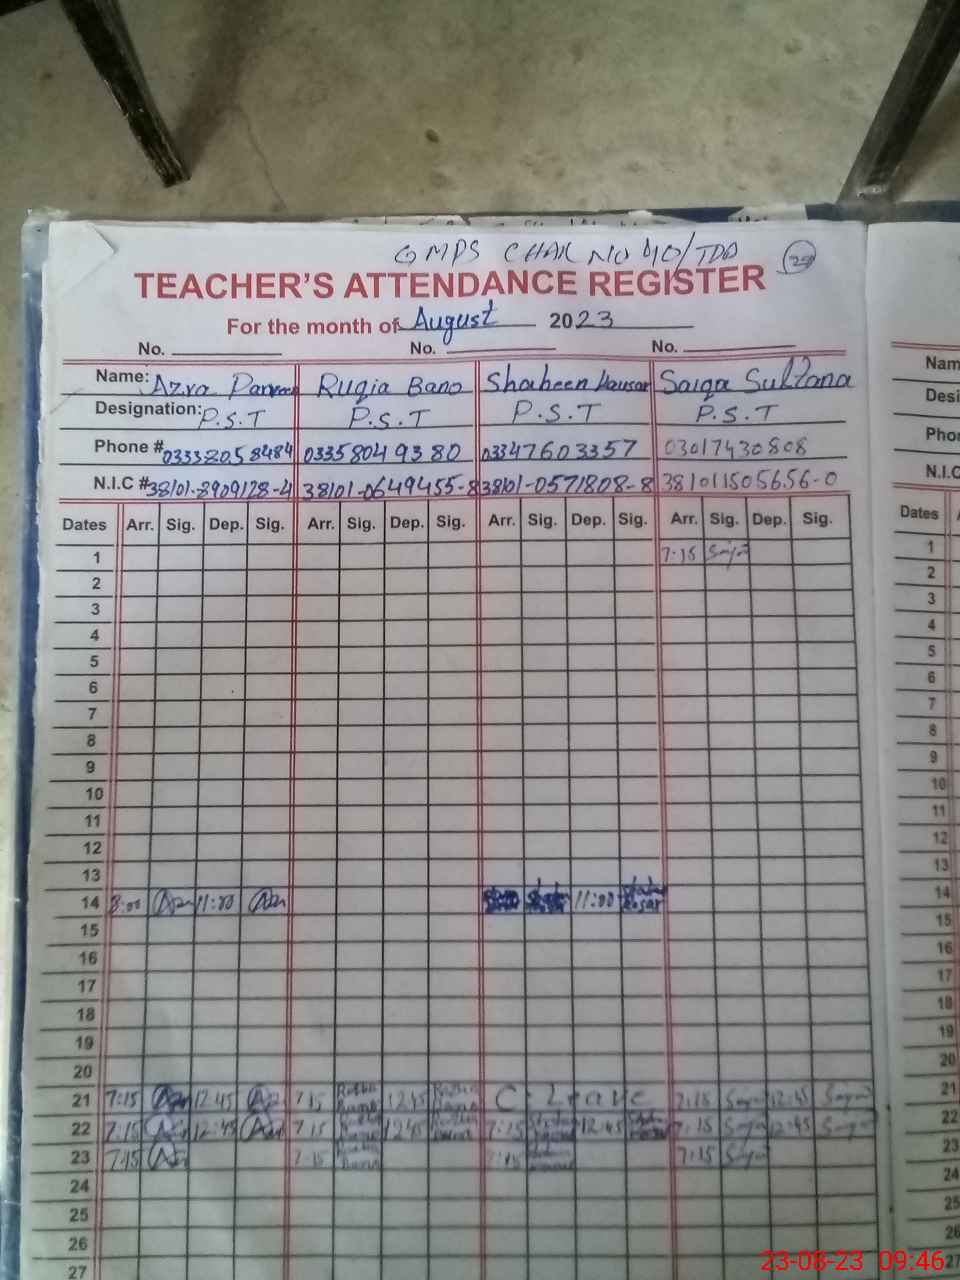 GMPS CHAK NO 40/TDA 25
TEACHER'S ATTENDANCE REGISTER
For the month of August 2023
No. No. No.
Name: Azra Ruqia Bano Shaheen Kausar Saiqa Sultana
Designation: P.S.T P.S.T P.S.T P.S.T
Phone # 03338058484 03358049380 03347603357 03017430808
N.I.C # 38101-8909128-4 38101-0649455-8 38101-0571808-8 381011505656-0
Dates Arr. Sig. Dep. Sig. Arr. Sig. Dep. Sig. Arr. Sig. Dep. Sig. Arr. Sig. Dep. Sig.
1 7:15
2
3
4
5
6
7
8
9
10
11
12
13
14 8:00 11:00 11:00
15
16
17
18
19
20
21 7:15 12:45 7:15 12:45 C. Leave 7:15 12:45
22 7:15 12:45 7:15 12:45 7:15 12:45 7:15 12:45
23 7:15 7:15 7:15 7:15
24
25
26
27
Nam
Desi
Phor
N.I.C
Dates
1
2
3
4
5
6
7
8
9
10
11
12
13
14
15
16
17
18
19
20
21
22
23
24
25
26
27
23-08-23 09:46